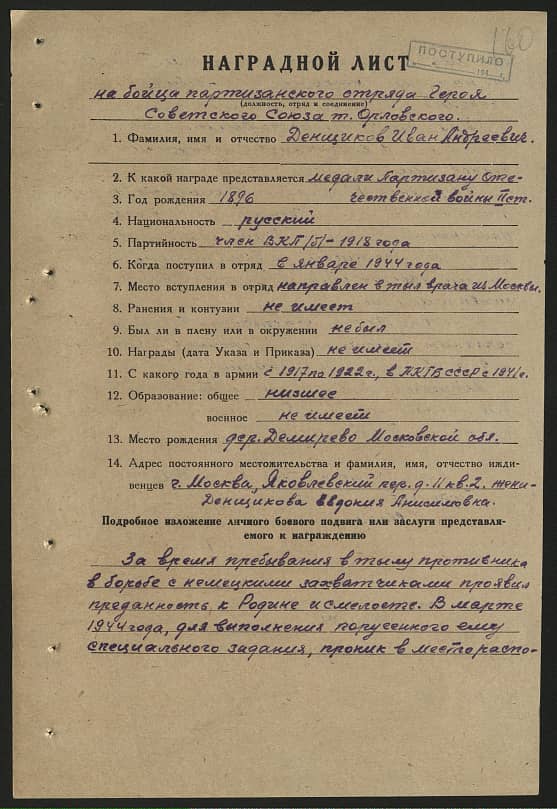 160
ПОСТУПИЛО
194 г.
НАГРАДНОЙ ЛИСТ
на бойца партизанского отряда Героя
(должность, отряд и соединение)
Советского Союза т. Орловского.
1. Фамилия, имя и отчество Денщиков Иван Андреевич.
2. К какой награде представляется медали Партизану Оте-
3. Год рождения 1896 чественной войны II ст.
4. Национальность русский
5. Партийность член ВКП/б/ - 1918 года
6. Когда поступил в отряд в январе 1944 года
7. Место вступления в отряд направлен в тыл врага из Москвы.
8. Ранения и контузии не имеет
9. Был ли в плену или в окружении не был
10. Награды (дата Указа и Приказа) не имеет
11. С какого года в армии с 1917 по 1922 г., в НКГБ СССР с 1941 г.
12. Образование: общее низшее
военное не имеет
13. Место рождения дер. Демирево Московской обл.
14. Адрес постоянного местожительства и фамилия, имя, отчество ижди-
венцев г. Москва, Яковлевский пер. д. 11 кв. 2. жена-
Денщикова Евдокия Анисимовна.
Подробное изложение личного боевого подвига или заслуги представля-
емого к награждению
За время пребывания в тылу противника
в борьбе с немецкими захватчиками проявил
преданность к Родине и смелость. В марте
1944 года, для выполнения порученного ему
специального задания, проник в место распо-